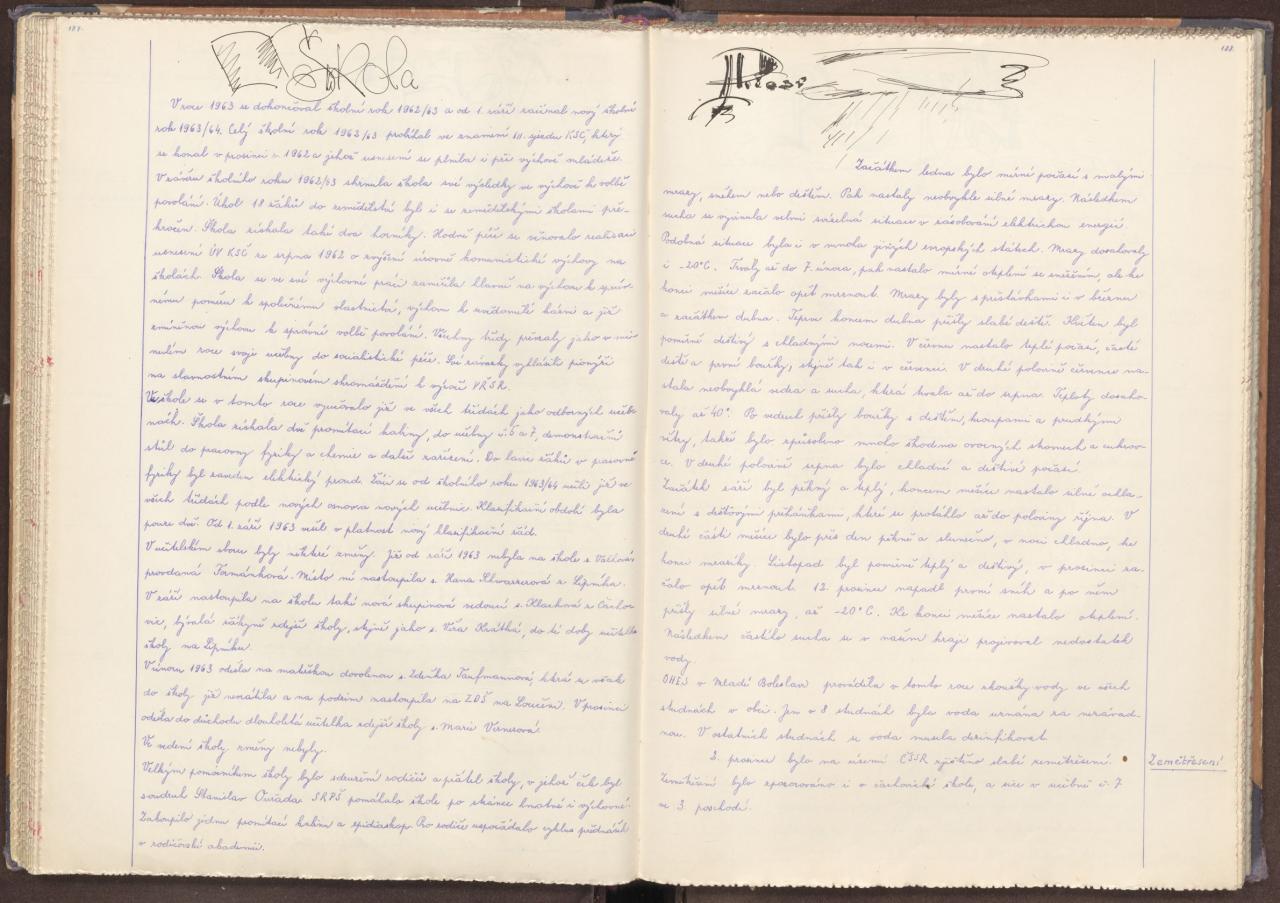 187.
Škola
V roce 1963 se dokončoval školní rok 1962/63 a od 1. září začínal nový školní
rok 1963/64. Celý školní rok 1963/63 probíhal ve znamení III. sjezdu KSČ, který
se konal v prosinci r. 1962 a jehož usnesení se plnila i při výchově mládeže.
V závěru školního roku 1962/63 shrnula škola své výsledky ve výchově k volbě
povolání. Úkol 18 žáků do zemědělství byl i se zemědělskými školami pře-
kročen. Škola získala také dva horníky. Hodně péče se věnovalo realizaci
usnesení ÚV KSČ ze srpna 1962 o zvýšení úrovně komunistické výchovy na
školách. Škola se ve své výchovné práci zaměřila hlavně na výchovu k správ-
nému poměru k společnému vlastnictví, výchovu k uvědomělé kázni a již
zmíněnou výchovu k správné volbě povolání. Všechny třídy převzaly jako v mi-
nulém roce svoje učebny do socialistické péče. Své závazky vyhlásili pionýři
na slavnostním skupinovém shromáždění k výročí VŘSR.
Ve škole se v tomto roce vyučovalo již ve všech třídách jako odborných učeb-
nách. Škola získala dvě promítací kabiny, do učebny č. 5 a 7, demonstrační
stůl do pracovny fyziky a chemie a další zařízení. Do lavic žáků v pracovně
fyziky byl zaveden elektrický proud. Žáci se od školního roku 1963/64 učili již ve
všech třídách podle nových osnov a nových učebnic. Klasifikační období byla
pouze dvě. Od 1. září 1963 vešel v platnost nový klasifikační řád.
V učitelském sboru byly některé změny. Již od září 1963 nebyla na škole s. Vaňková
provdaná. Místo ní nastoupila s. Hana Schwarzerová z Lipníka.
V září nastoupila na školu také nová skupinová vedoucí s. Klachová z Čacho-
vic, bývalá žákyně zdejší školy, stejně jako s. Věra Krátká, do té doby učitelka
školy na Lipníku.
V únoru 1963 odešla na mateřskou dovolenou s. Zdeňka Taufmannová, která se však
do školy již nevrátila a na podzim nastoupila na ZDŠ na Loučeni. V prosinci
odešla do důchodu dlouholetá učitelka zdejší školy s. Marie Vernerová.
Ve vedení školy změny nebyly.
Velkým pomocníkem školy bylo sdružení rodičů a přátel školy, v jehož čele byl
soudruh Stanislav. SRPŠ pomáhalo škole po stránce hmotné i výchovné.
Zakoupilo jednu promítací kabinu a epidiaskop. Pro rodiče uspořádalo cyklus přednášek
v rodičovské akademii.
188.
Počasí
Začátkem ledna bylo mírné počasí s malými
mrazy, sněhem nebo deštěm. Pak nastaly neobvykle silné mrazy. Následkem
sucha se vyvinula velmi svízelná situace v zásobování elektrickou energií.
Podobná situace byla i v mnoha jiných evropských státech. Mrazy dosahovaly
i -20°C. Trvaly až do 7. února, pak nastalo mírné oteplení se sněžením, ale ke
konci měsíce začalo opět mrznout. Mrazy byly s přestávkami i v březnu
a začátkem dubna. Teprve koncem dubna přišly slabé deště. Květen byl
poměrně deštivý s chladnými nocemi. V červnu nastalo teplé počasí, časté
deště a první bouřky, stejně tak i v červenci. V druhé polovině července na-
stala neobvyklá vedra a sucha, která trvala až do srpna. Teploty dosaho-
valy až 40°. Po vedrech přišly bouřky s deštěm, kroupami a prudkými
větry, takže bylo způsobeno mnoho škod na ovocných stromech a cukrov-
ce. V druhé polovině srpna bylo chladné a deštivé počasí.
Začátek září byl pěkný a teplý, koncem měsíce nastalo silné ochla-
zení s dešťovými přeháňkami, které se protáhlo až do poloviny října. V
druhé části měsíce bylo přes den pěkně a slunečno, v noci chladno, ke
konci mrazíky. Listopad byl poměrně teplý a deštivý, v prosinci za-
čalo opět mrznout. 12. prosince napadl první sníh a po něm
přišly silné mrazy, až -20°C. Ke konci měsíce nastalo oteplení.
Následkem častého sucha se v našem kraji projevoval nedostatek
vody.
OHES v Mladé Boleslavi prováděla v tomto roce zkoušky vody ve všech
studnách v obci. Jen v 8 studnách byla voda uznána za nezávad-
nou. V ostatních studnách se voda musela dezinfikovat.
2. prosince bylo na území ČSSR zjištěno slabé zemětřesení.
Zemětřesení bylo zpozorováno i v čachovické škole, a sice v učebně č. 7
ve 3. poschodí.
Zemětřesení